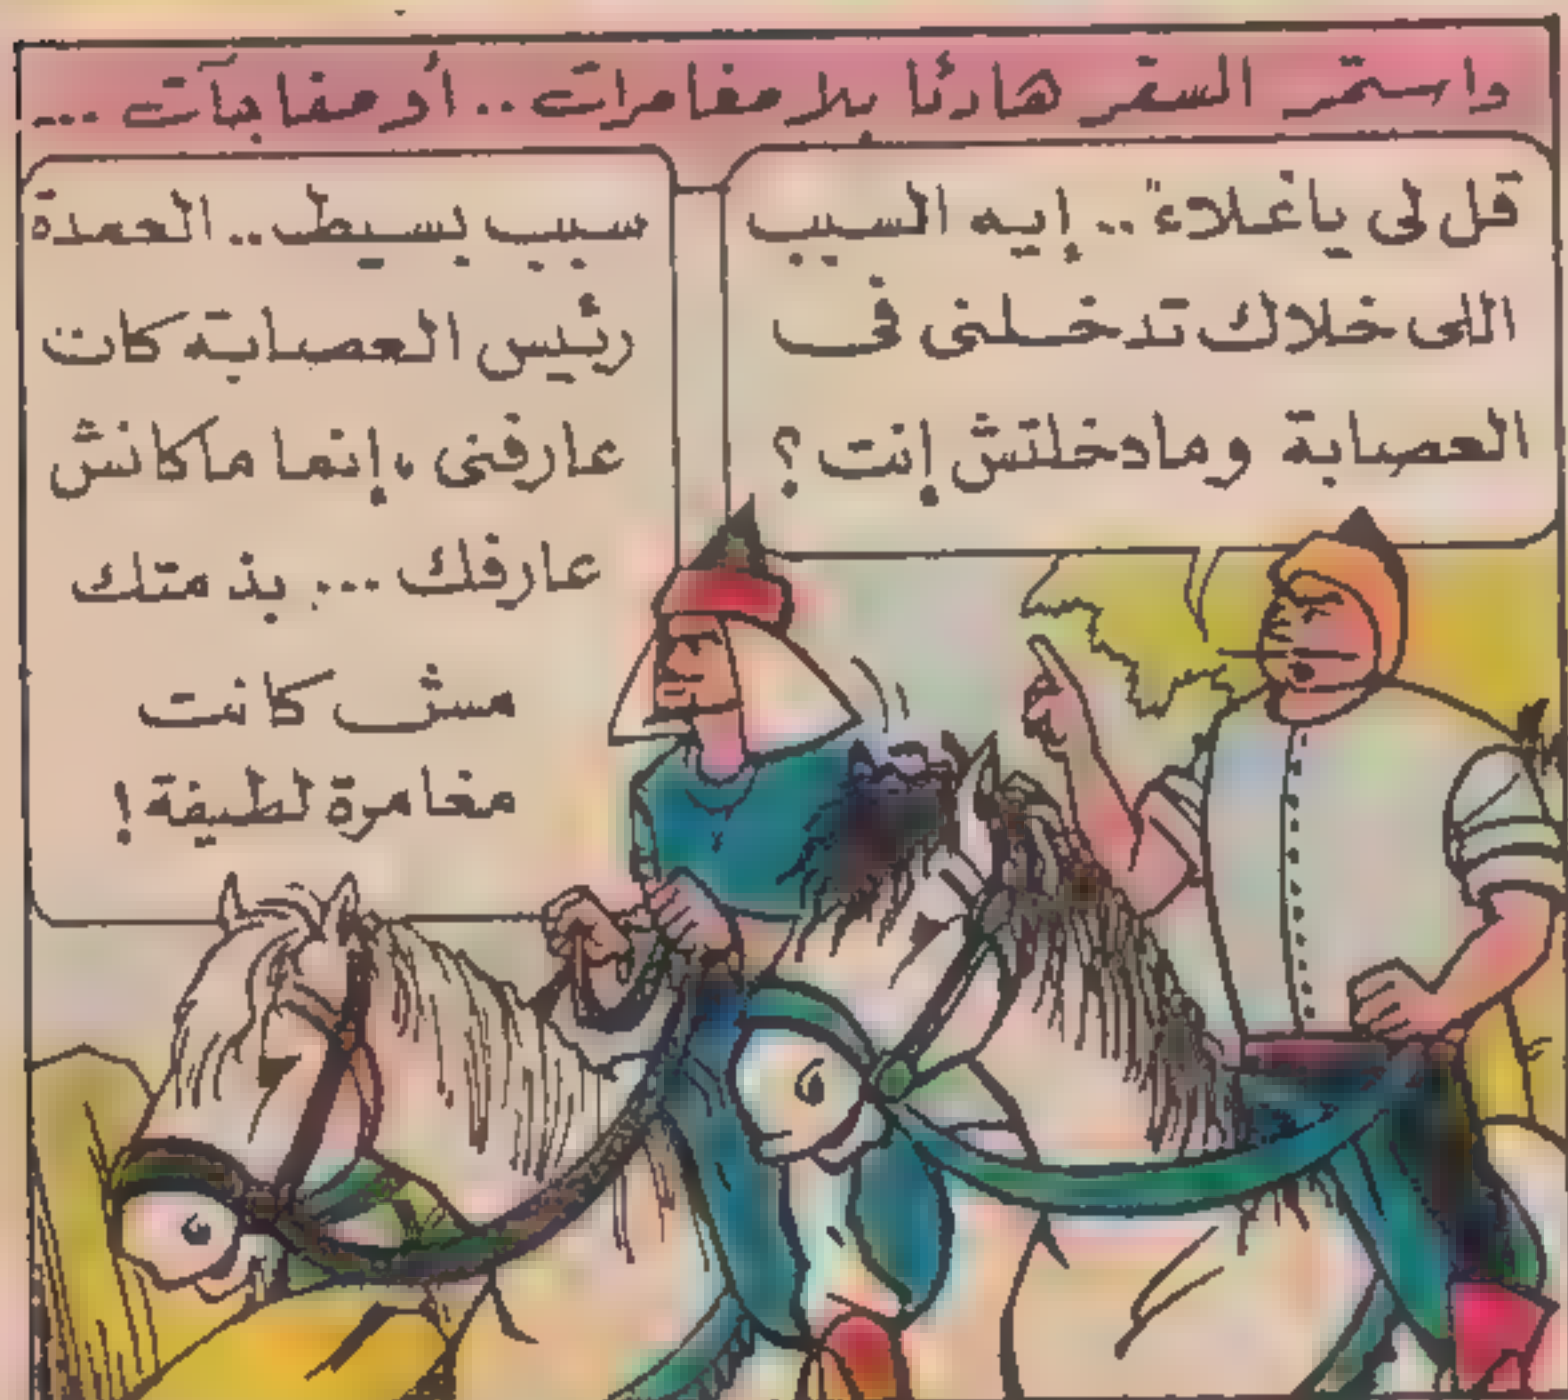 واستمر السفر هادئا بلا مغامرات .. أو مفاجآت ...
قل لى يا "علاء" .. إيه السبب
اللى خلاك تدخلنى فى
العصابة ومادخلتش إنت ؟
سبب بسيط .. العمدة
رئيس العصابة كان
عارفنى ، إنما ماكانش
عارفك ... بذمتك
مش كانت
مغامرة لطيفة !